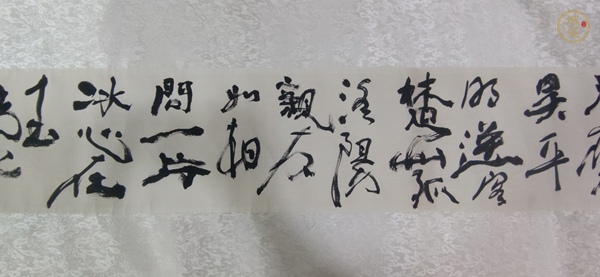 吳平
明送客
楚山孤
洛陽
親友
如相
問一片
冰心在